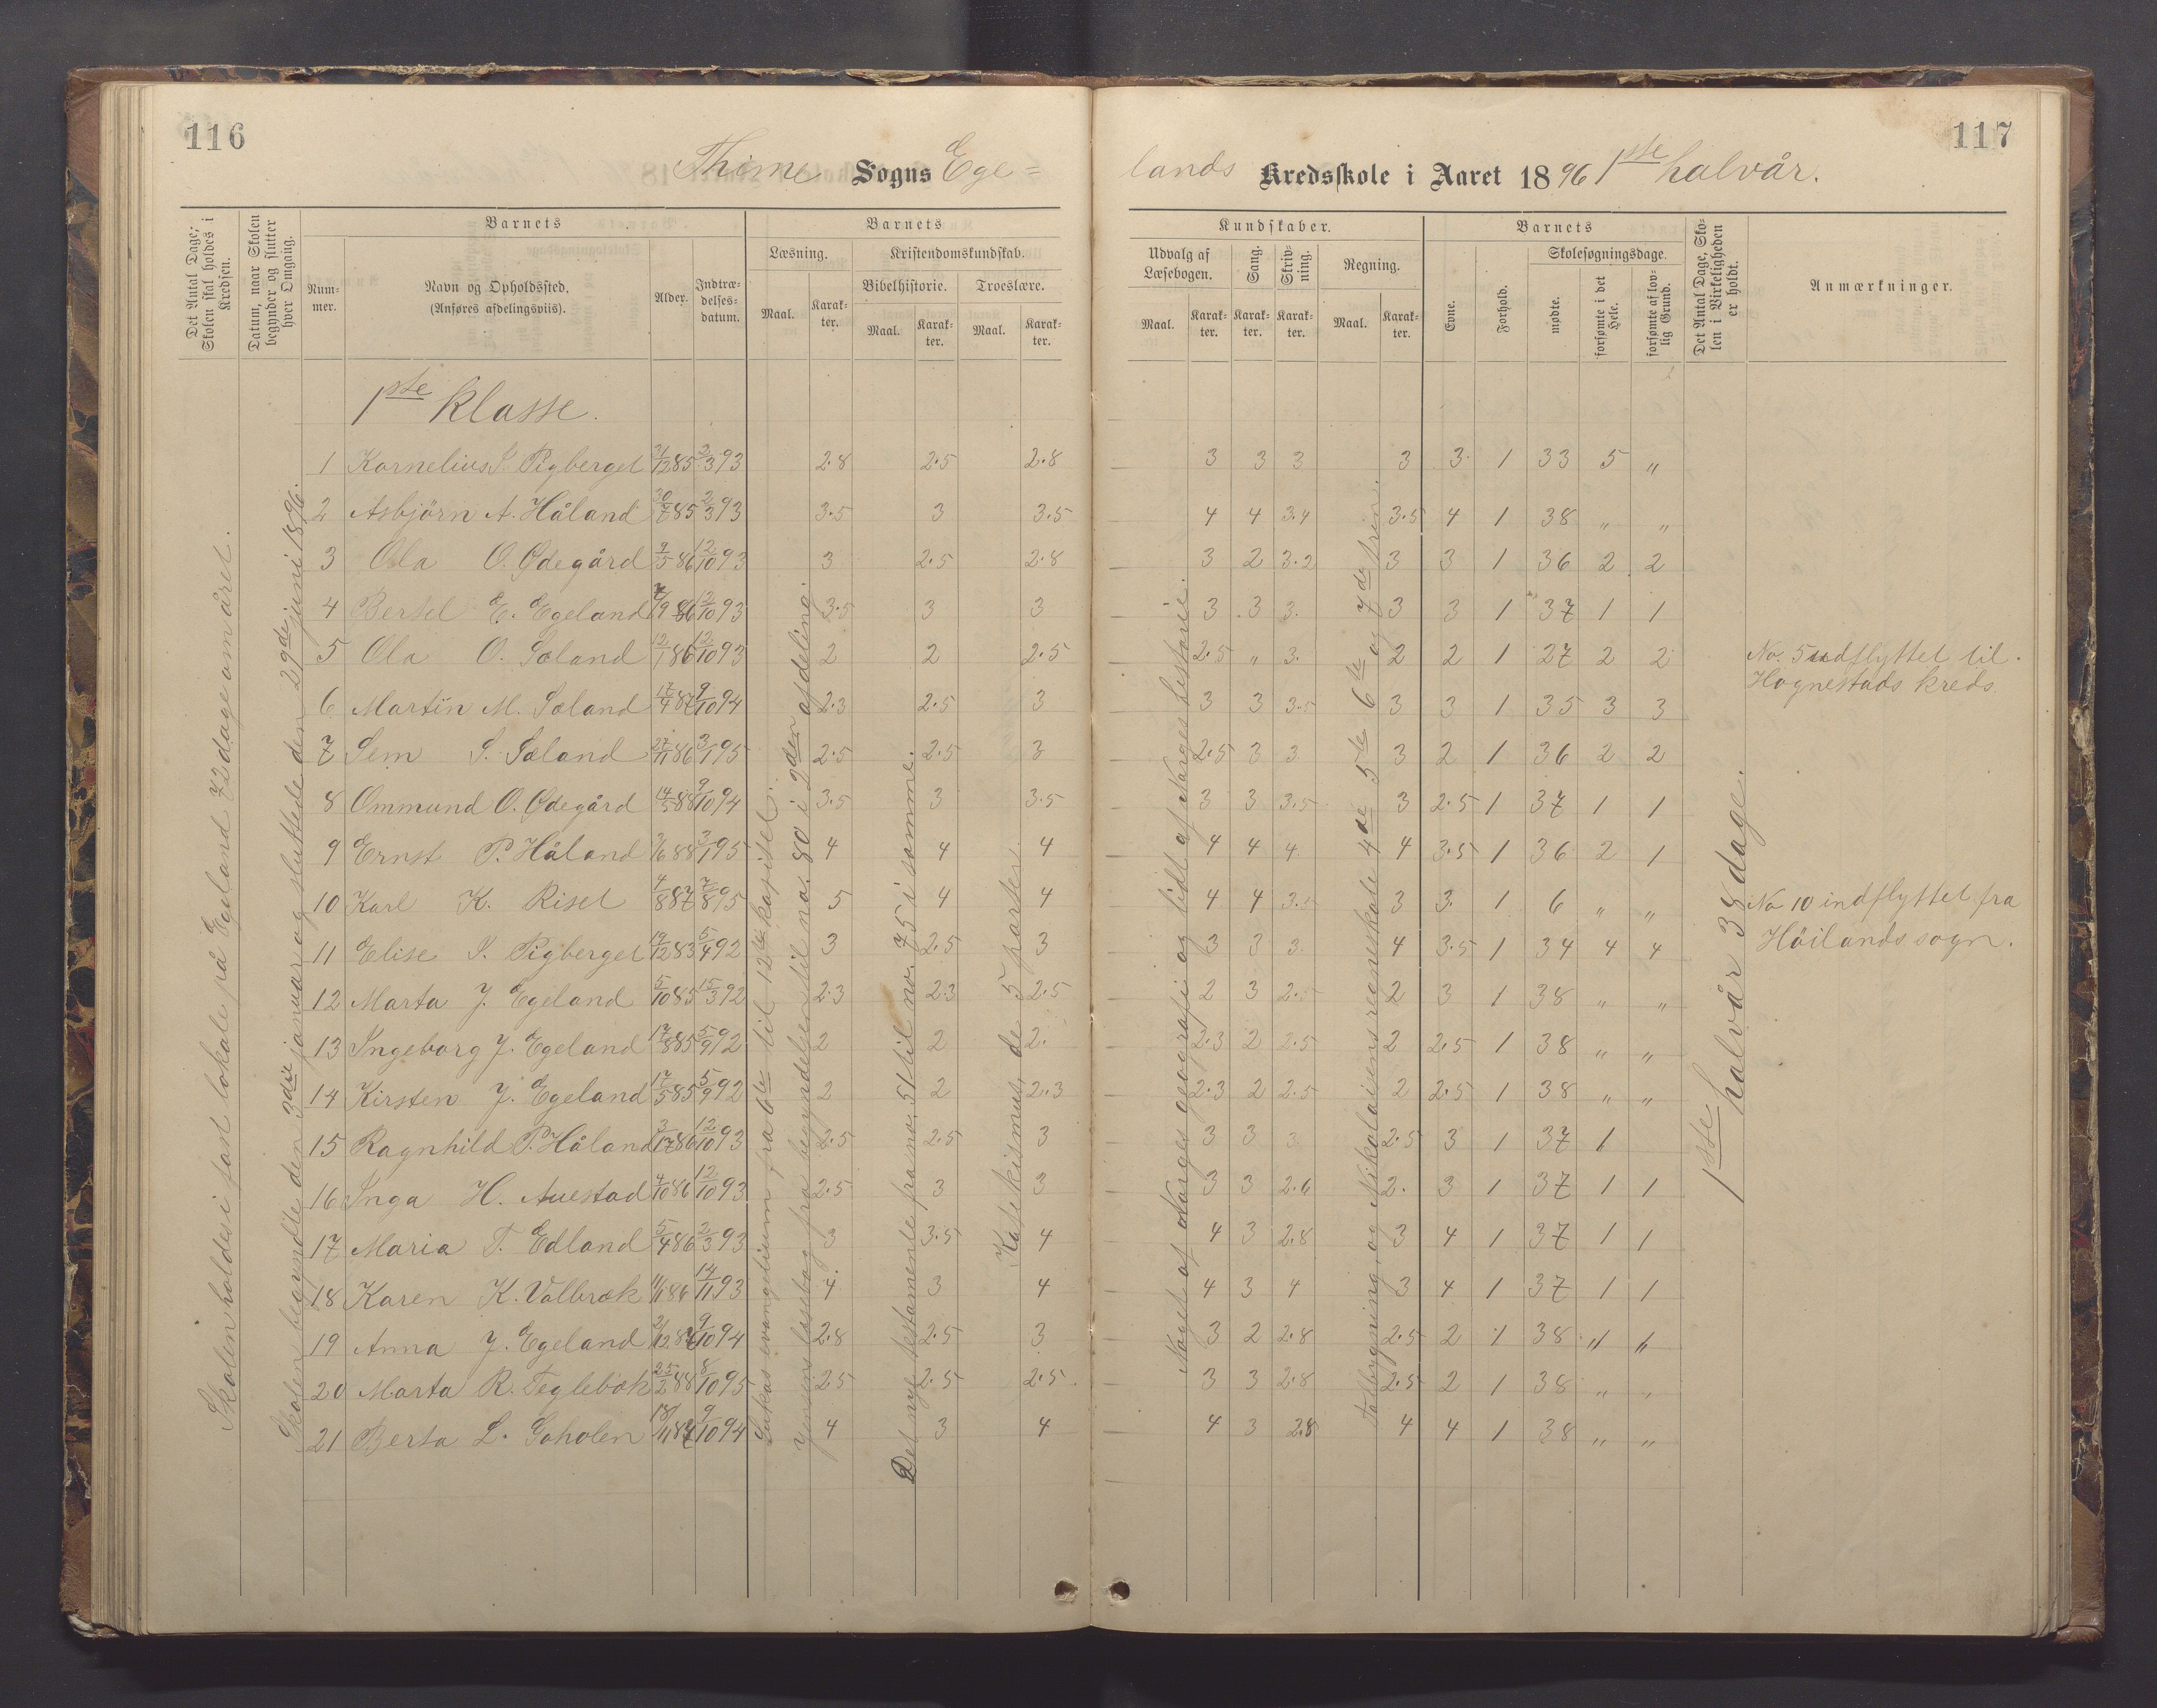 116
117
Thime Sogns Ege=
lands Kredsskole i Aaret 1896 1ste halvår.
Det Antal Dage, Skolen skal holdes i Kredsen.
Datum, naar Skolen begynder og slutter hver Omgang.
Barnets
Num-
mer.
Navn og Opholdssted.
(Anføres afdelingsviis).
Alder.
Indtræ-
delses-
datum.
Barnets
Læsning.
Maal.
Karak-
ter.
Kristendomskundskab.
Bibelhistorie.
Maal.
Karak-
ter.
Troeslære.
Maal.
Karak-
ter.
Kundskaber.
Udvalg af
Læsebogen.
Maal.
Karak-
ter.
Sang.
Karak-
ter.
Skriv-
ning.
Karak-
ter.
Regning.
Maal.
Karak-
ter.
Barnets
Evne.
Forhold.
Skolesøgningsdage.
mødte.
forsømte i det Hele.
forsømte af lov-
lig Grund.
Det Antal Dage, Sko-
len i Virkeligheden
er holdt.
Anmærkninger.
Skolen holdes i fast lokale på Egeland 72 dage om året.
Skolen begyndte den 3die januar og sluttede den 29de juni 1896.
Lukas evangelium fra 6te til 12te kapitel.
Jensens læsebog fra begyndelsen til no. 80 i 2den afdeling.
Det nye testamente fra no. 51 til no. 75 i samme.
Katekismus, de 5 parter.
Noget af Norges geografi og lidt af Norges historie.
Talbygning, og Nikolaisens regneskole 4de 5te 6te og 7de trin.
1ste halvår 38 dage.
1ste klasse.
1 Kornelius S. Pigberget 21/12 85 2/3 93 2.8 2.5 2.8 3 3 3 3 3. 1 33 5 "
2 Asbjörn A. Håland 30/7 85 2/3 93 3.5 3 3.5 4 4 3.4 3.5 4 1 38 " "
3 Ola O. Ødegård 9/5 86 12/10 93 3 2.5 2.8 3 2 3.2 3 3 1 36 2 2
4 Bertel E. Egeland 7/9 86 12/10 93 3.5 3 3 3 3 3. 3 3 1 37 1 1
5 Ola O. Sæland 12/1 86 12/10 93 2 2 2.5 2.5 " 3. 2 2 1 27 2 2 No. 5 udflyttet til
Hognestads kreds.
6 Martin M. Sæland 17/4 87 9/10 94 2.3 2.5 3 3 3 3.5 3 3 1 35 3 3
7 Sem S. Sæland 27/11 86 3/1 95 2.5 2.5 3 2.5 3 3 3 2 1 36 2 2
8 Ommund O. Ødegård 14/5 88 9/10 94 3.5 3 3.5 3 3 3.5 3 2.5 1 37 1 1
9 Ernst P. Håland 3/6 88 3/1 95 4 4 4 4 4 4. 4 3.5 1 36 2 1
10 Karl K. Riset 4/8 87 7/8 95 5 4 4 4 4 3 3. 1 6 " " No 10 indflyttet fra
Höilands sogn.
11 Elise S. Pigberget 19/12 83 5/4 92 3 2.5 3 3 3 3. 4 3.5 1 34 4 4
12 Marta J. Egeland 5/10 85 15/3 92 2.3 2.3 2.5 2 3 2.5 2 3 1 38 " "
13 Ingeborg J. Egeland 17/8 85 5/9 92 2 2 2. 2.3 2 2.5 2 2.5 1 38 " "
14 Kirsten J. Egeland 17/5 85 5/9 92 2 2 2.3 2.3 2 2.5 2 2.5 1 38 " "
15 Ragnhild P. Håland 86 12/10 93 2.5 2.5 3 3 3 3 2.5 3 1 37 1
16 Inga H. Auestad 4/10 86 12/10 93 2.5 3 3 3 3 2.6 2. 3 1 37 1 1
17 Maria T. Edland 5/4 86 2/3 93 3 3.5 4 4 3 2.8 3 4 1 37 1 1
18 Karen K. Valbræk 86 14/11 93 4 3 4 4 3 4 3 4 1 37 1 1
19 Anna J. Egeland 9/10 94 2.8 2.5 3 3 2 2.8 2.5 2 1 38 " "
20 Marta R. Teglebæk 25/2 88 8/10 95 2.5 2.5 2.5 3 3 2.8 2.5 2 1 38 " "
21 Berta L. Goholen 18/11 87 9/10 94 4 3 4 4 3 2.8 4 4 1 38 " "